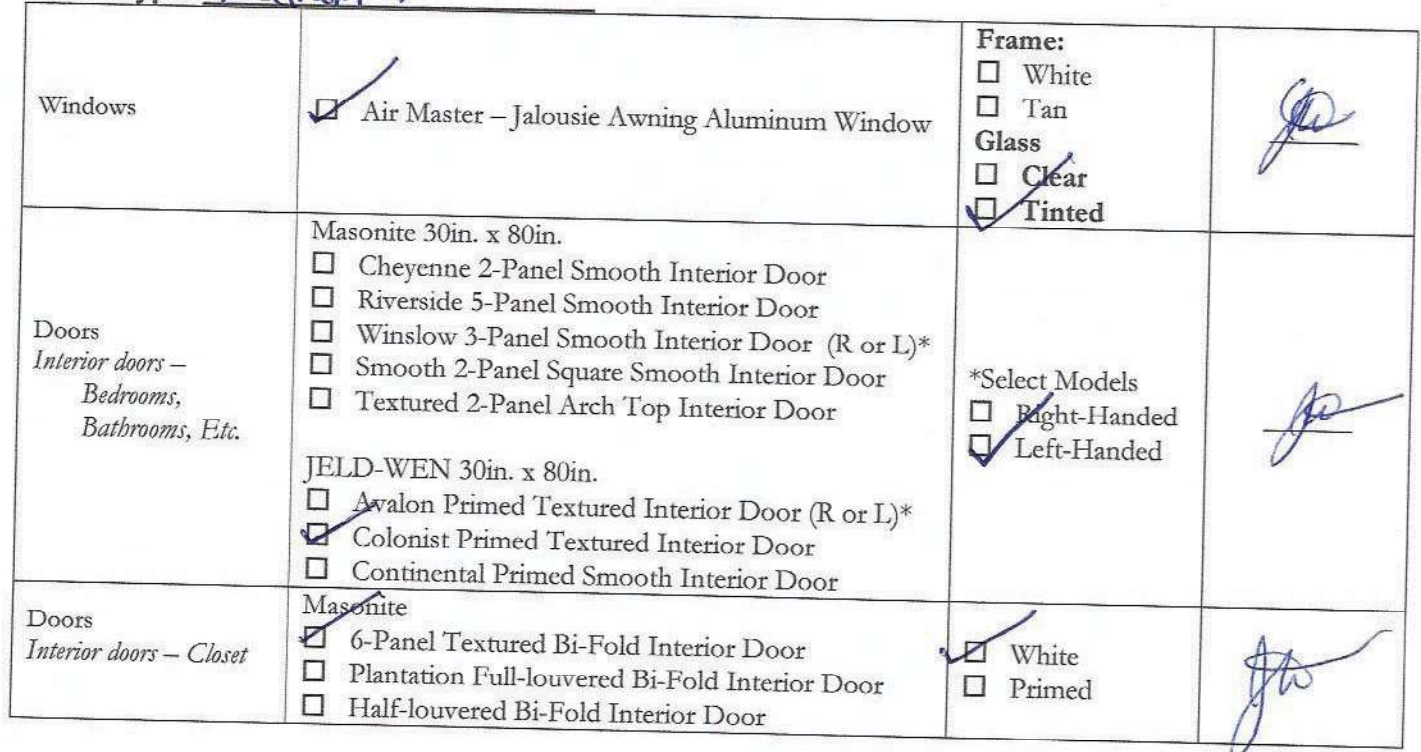 Windows
☑ Air Master – Jalousie Awning Aluminum Window
Frame:
☐ White
☐ Tan
Glass
☐ Clear
☑ Tinted
Doors
Interior doors –
Bedrooms,
Bathrooms, Etc.
Masonite 30in. x 80in.
☐ Cheyenne 2-Panel Smooth Interior Door
☐ Riverside 5-Panel Smooth Interior Door
☐ Winslow 3-Panel Smooth Interior Door (R or L)*
☐ Smooth 2-Panel Square Smooth Interior Door
☐ Textured 2-Panel Arch Top Interior Door
JELD-WEN 30in. x 80in.
☐ Avalon Primed Textured Interior Door (R or L)*
☑ Colonist Primed Textured Interior Door
☐ Continental Primed Smooth Interior Door
*Select Models
☐ Right-Handed
☑ Left-Handed
Doors
Interior doors – Closet
Masonite
☑ 6-Panel Textured Bi-Fold Interior Door
☐ Plantation Full-louvered Bi-Fold Interior Door
☐ Half-louvered Bi-Fold Interior Door
☑ White
☐ Primed